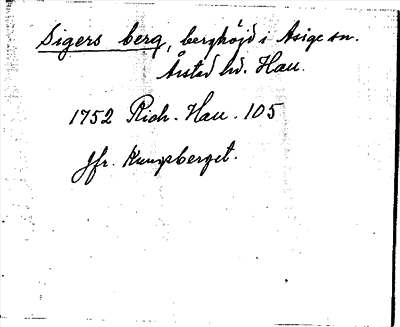 Sigers berg, berghöjd i Asige sn.
Årstad hd. Hall.
1752 Rich. Hall. 105
Jfr. Kungsberget.